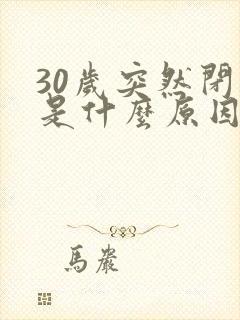 30歲突然閉
是什麼原因
馬嚴